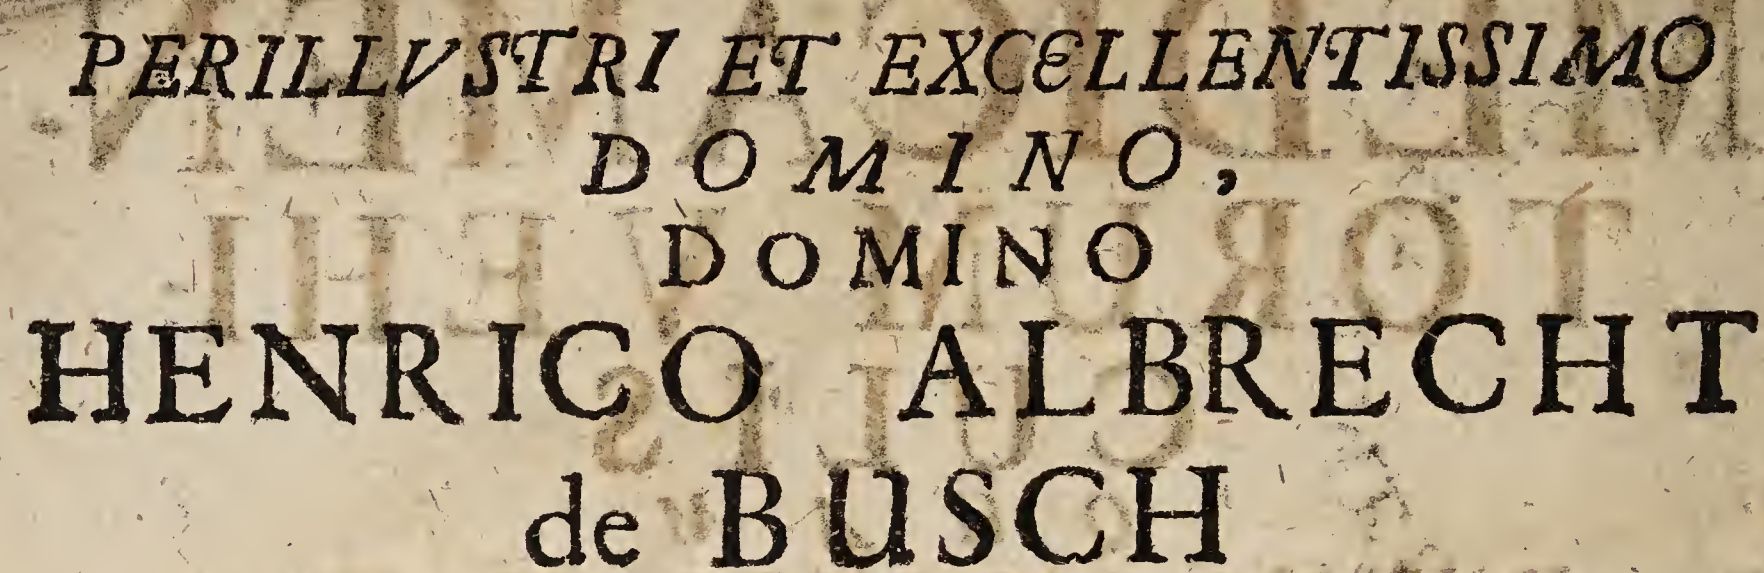 PERILLVSTRI ET EXCELLENTISSIMO
DOMINO,
DOMINO
HENRICO ALBRECHT
de BUSCH